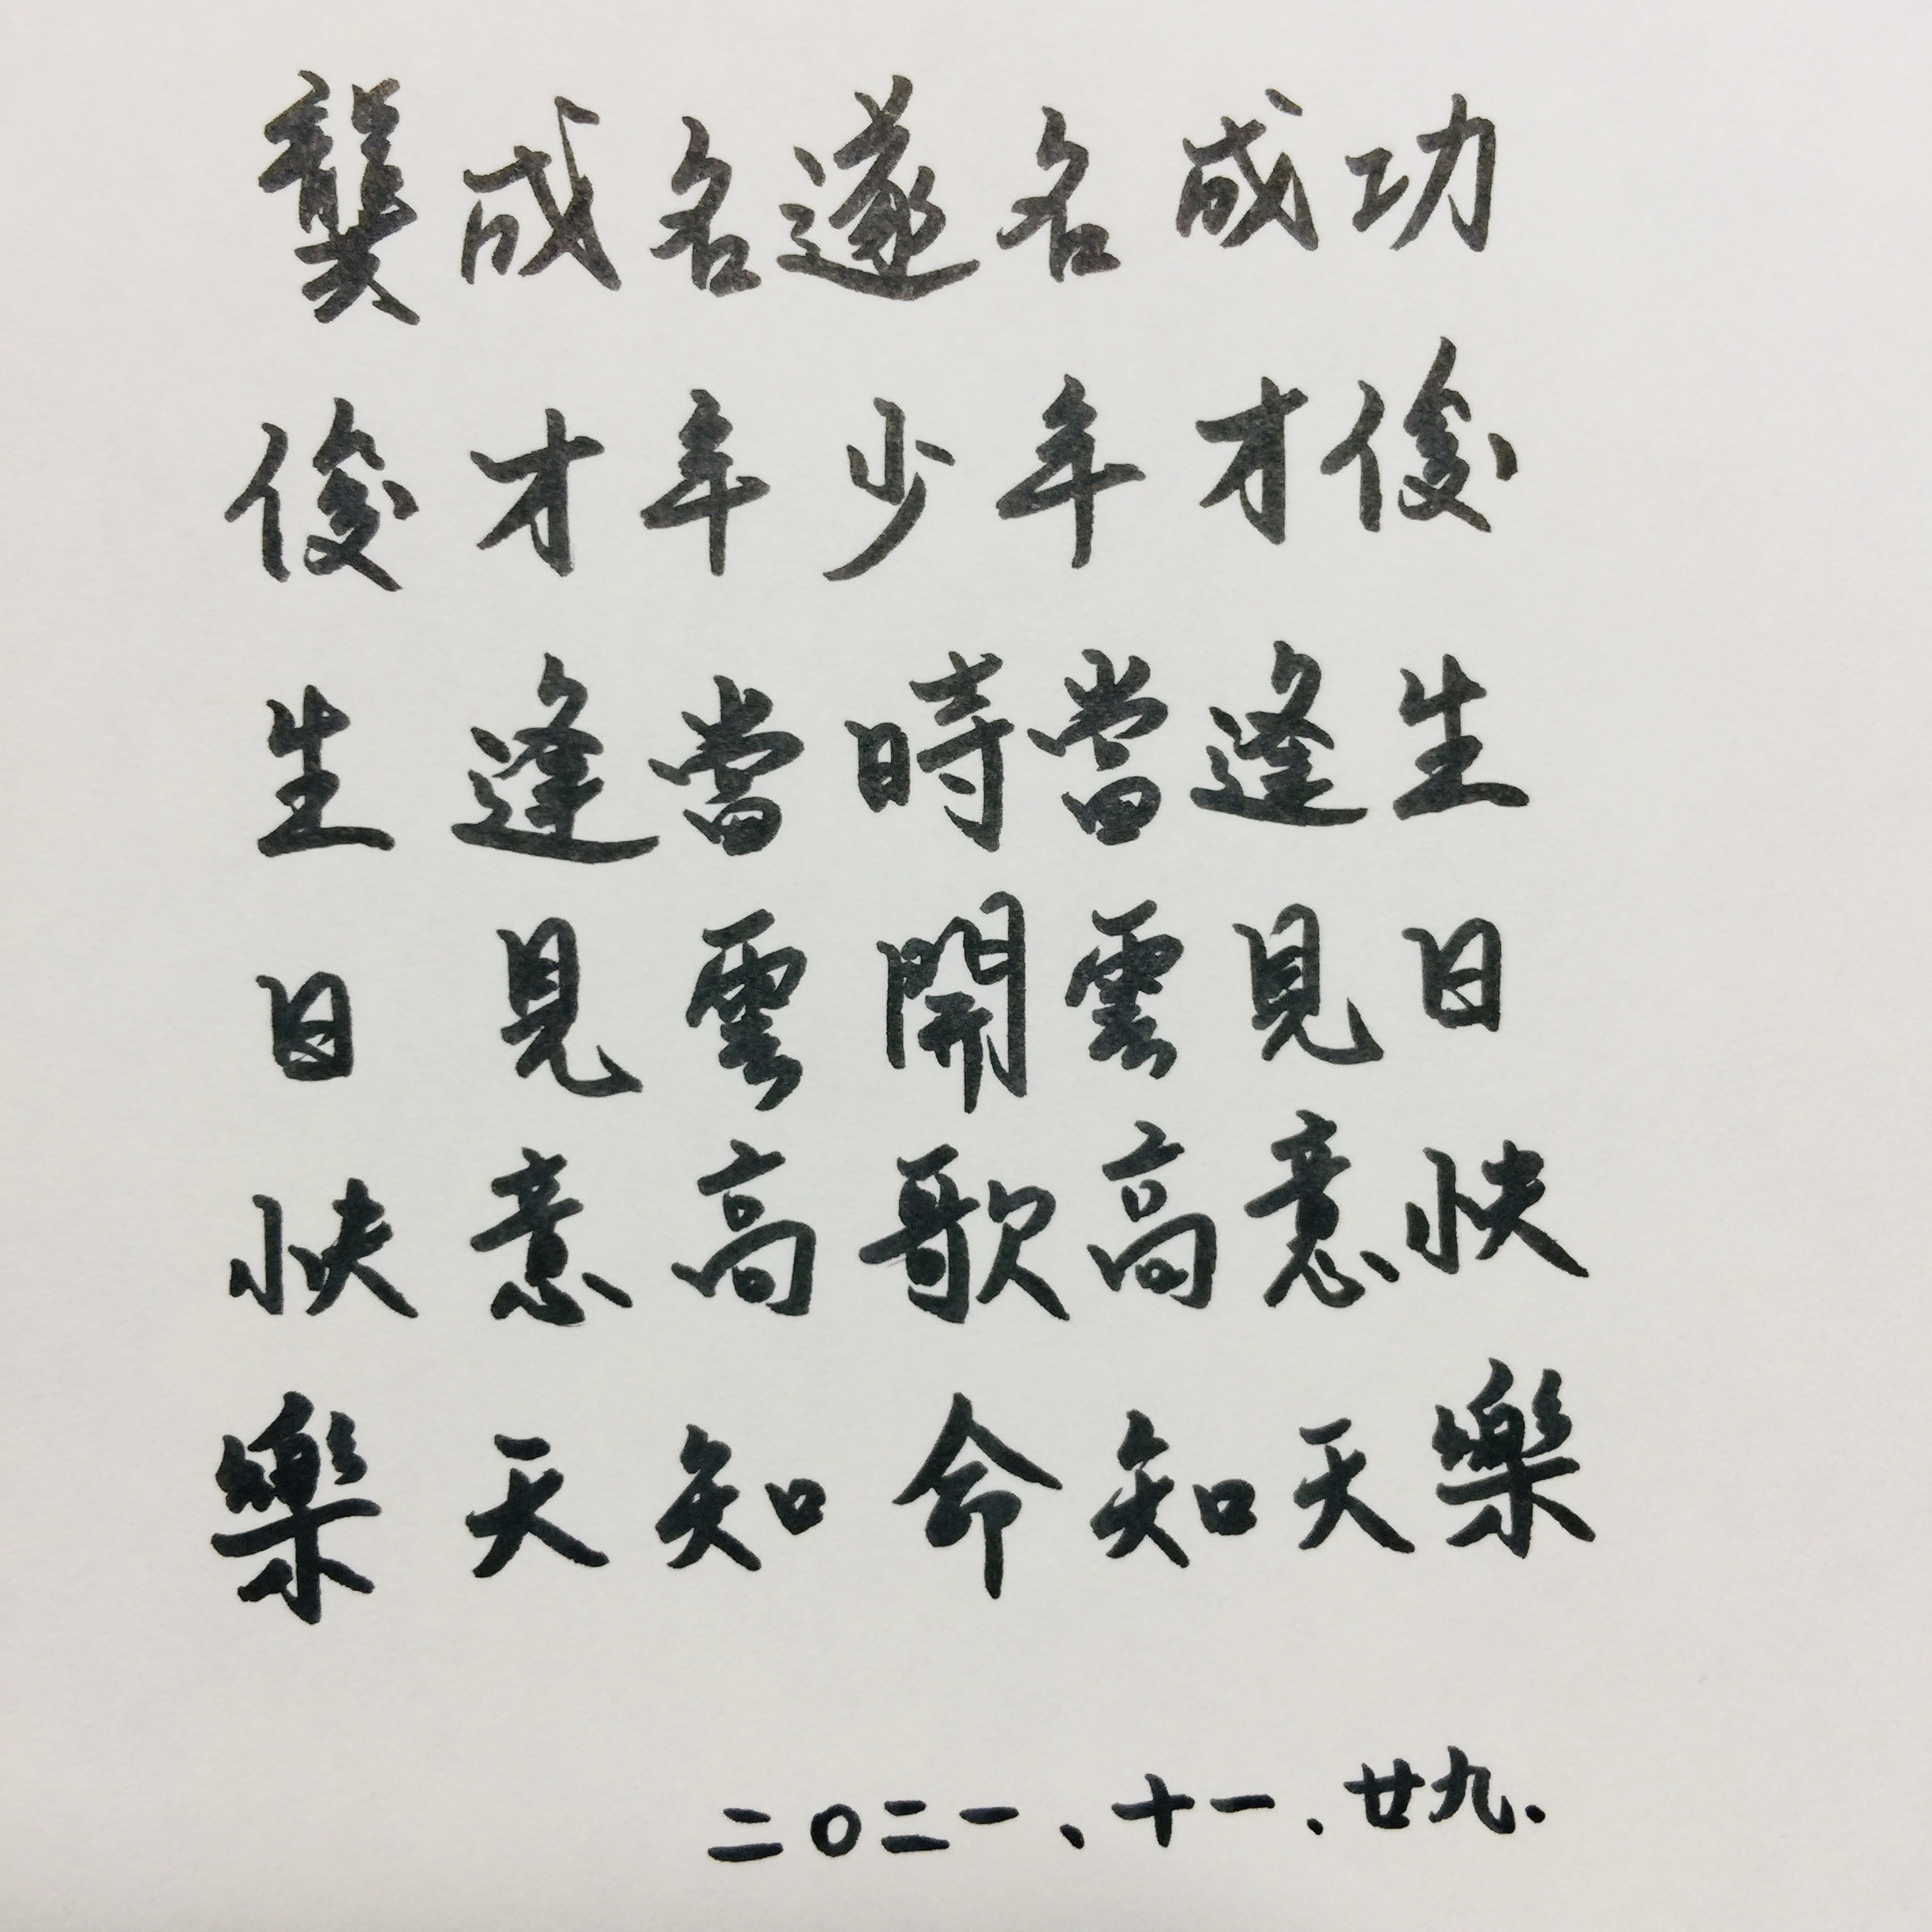 龔成名遂名成功
俊才年少年才俊
生逢當時當逢生
日見雲開雲見日
快意高歌高意快
樂天知命知天樂
二〇二一、十一、廿九.